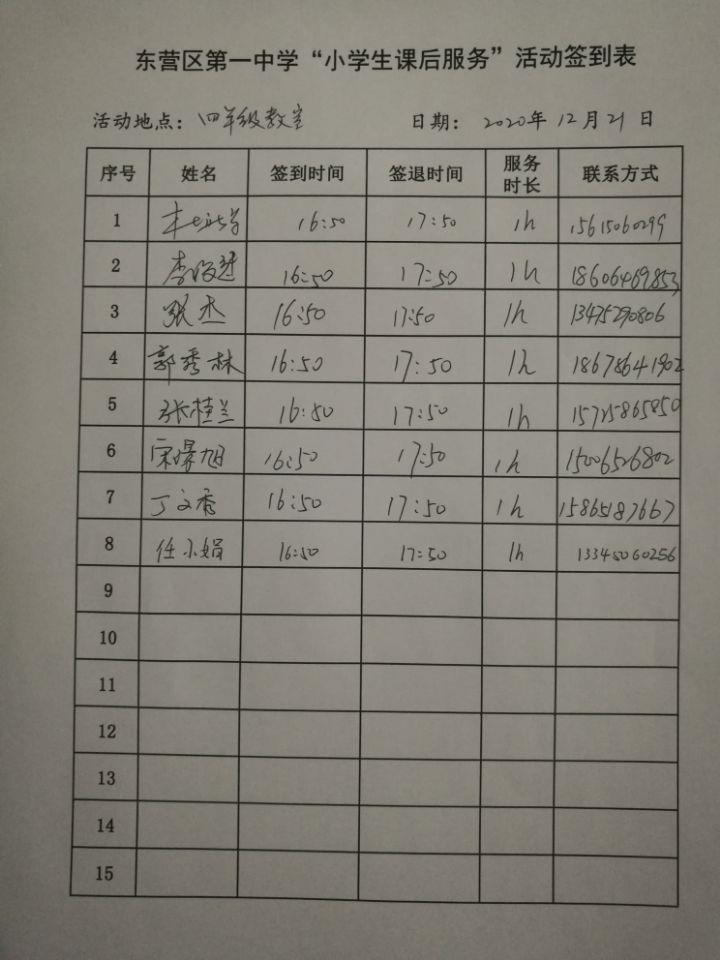 东营区第一中学“小学生课后服务”活动签到表
活动地点：四年级教室 日期：2020年12月21日
序号 姓名 签到时间 签退时间 服务时长 联系方式
1 16:50 17:50 1h 15615060299
2 16:50 17:50 1h 18606469853
3 张杰 16:50 17:50 1h 13475290806
4 郭秀林 16:50 17:50 1h 18678641902
5 张桂兰 16:50 17:50 1h 15725865850
6 16:50 17:50 1h 15006526802
7 丁文香 16:50 17:50 1h 15865187667
8 任小娟 16:50 17:50 1h 13345060256
9
10
11
12
13
14
15